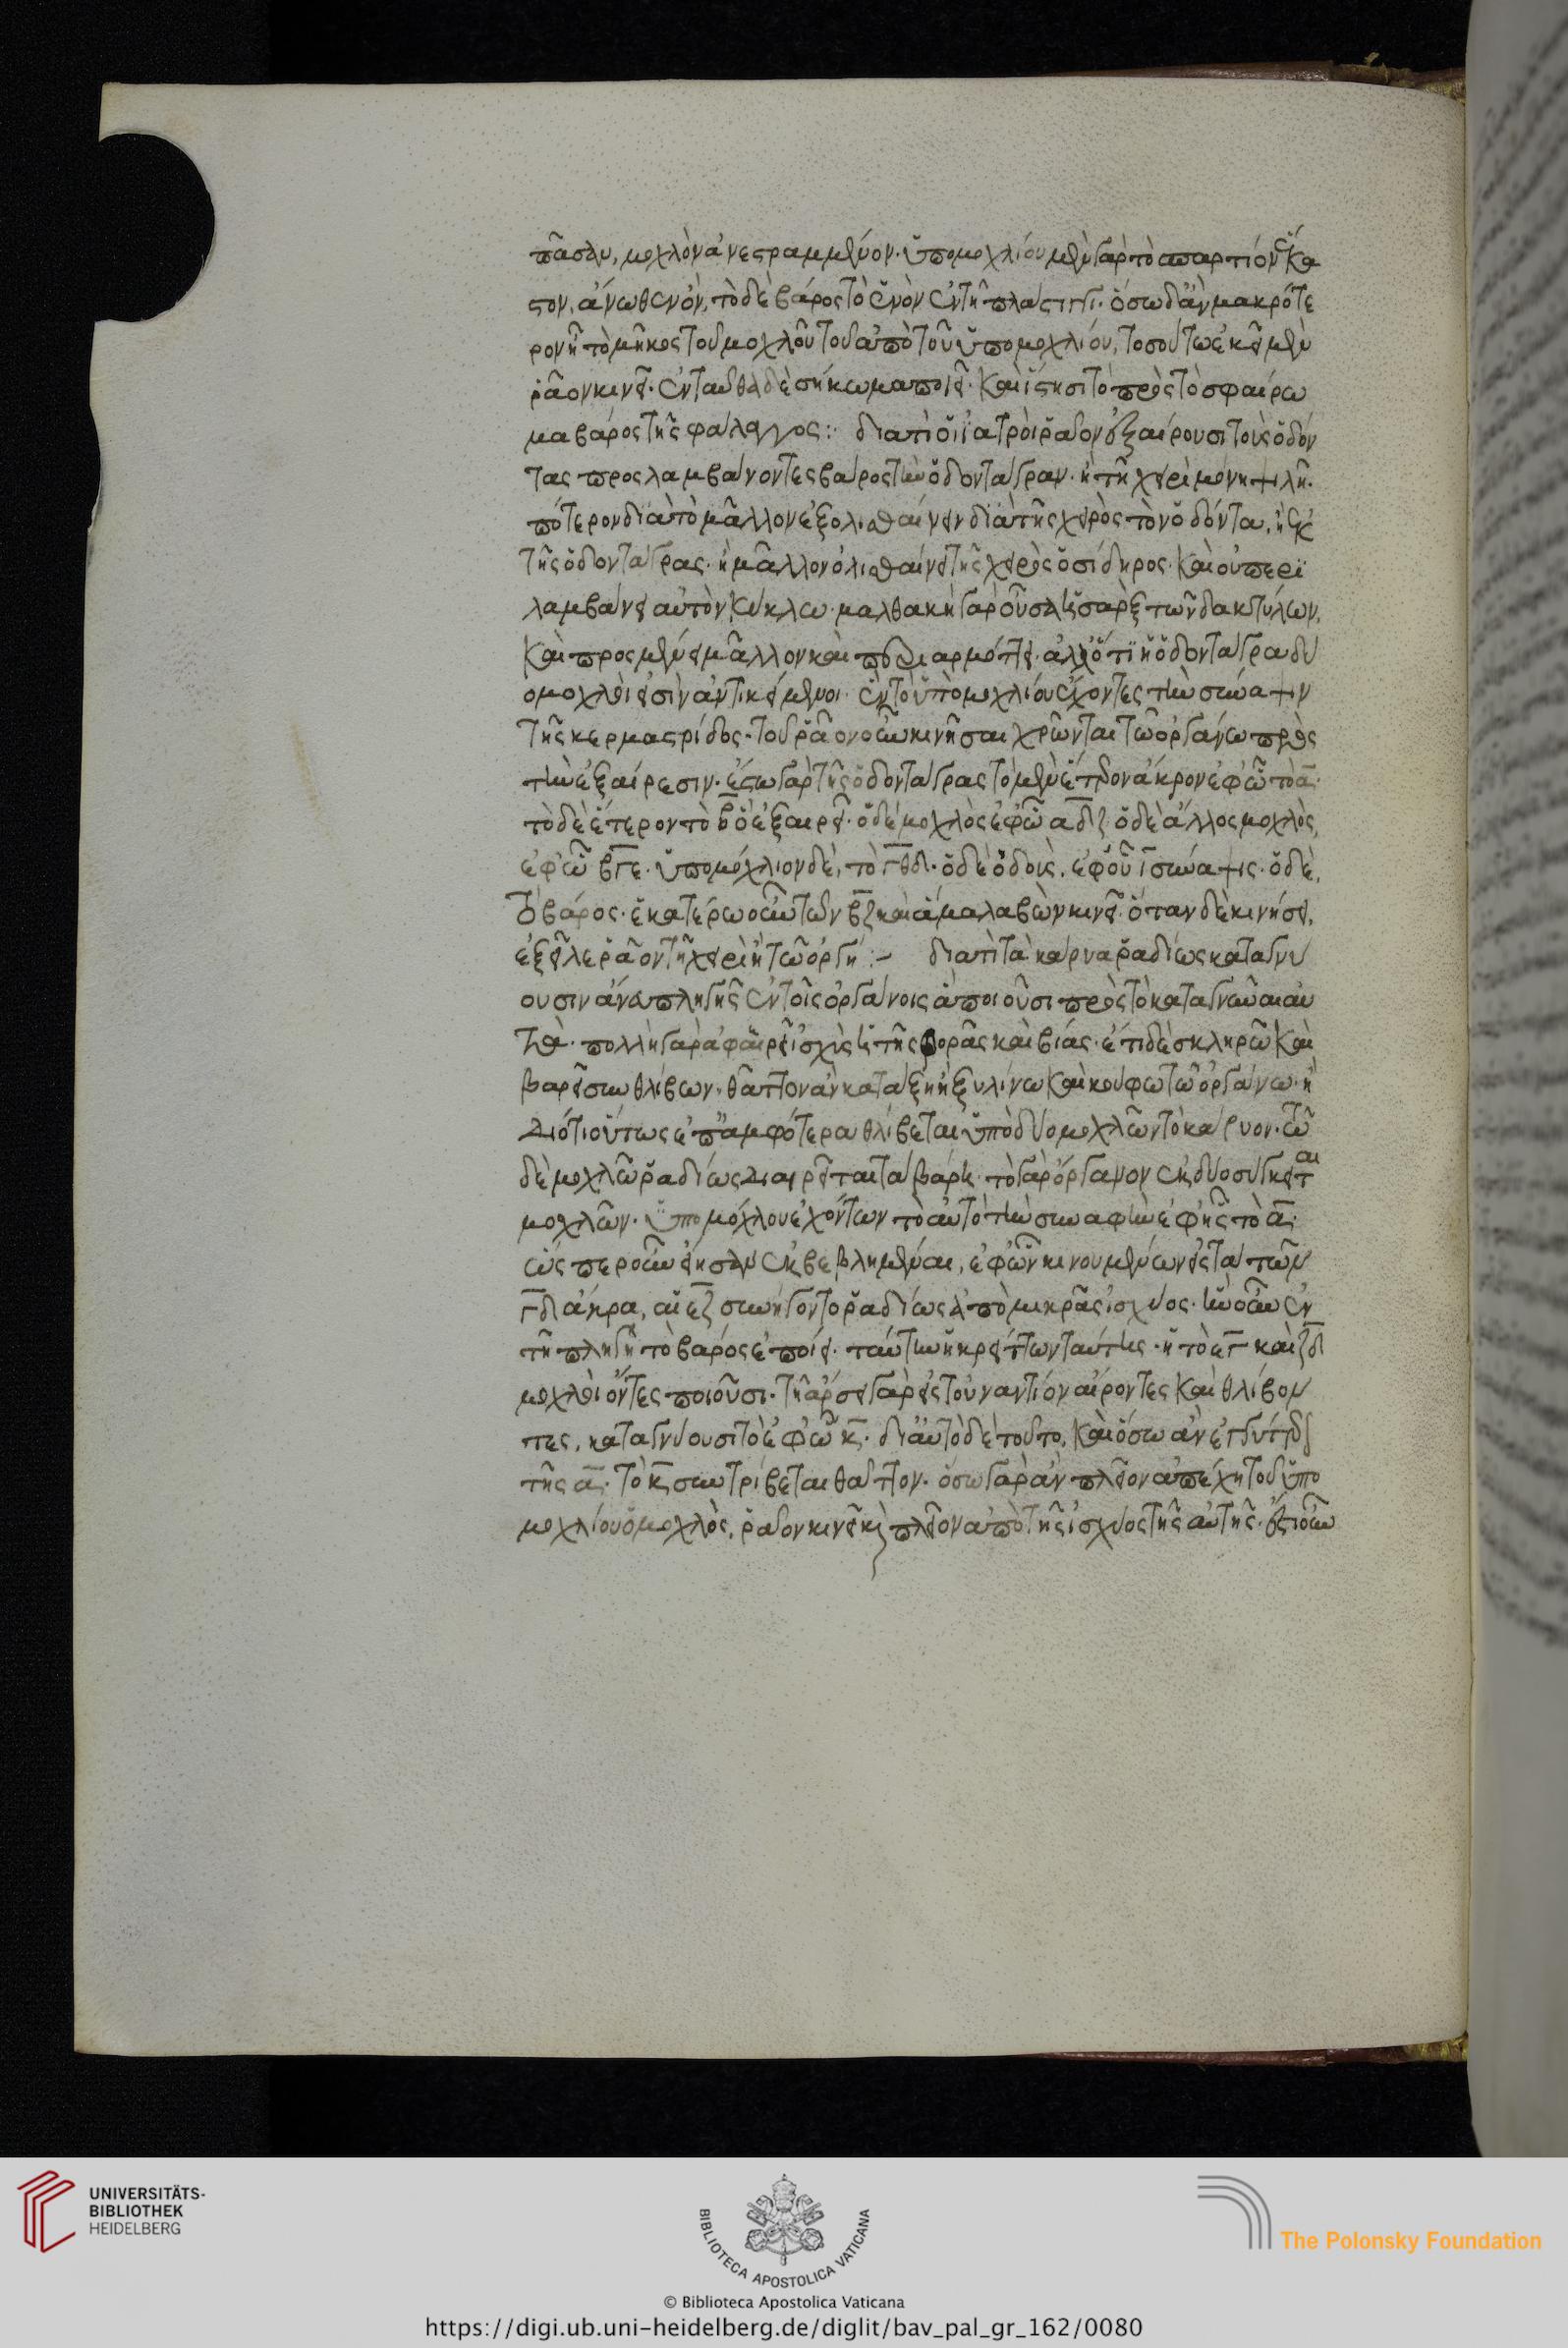 πᾶσαν, μοχλὸν ἀνεστραμμένον. ὑπομοχλίου μὲν γὰρ τὸ σπαρτίον ἕκα
στον, ἄνωθεν ὄν, τὸ δὲ βάρος τὸ ἐνὸν ἐν τῇ πλάστιγγι. ὅσω δ' ἂν μακρότε
ρον ἦ τὸ μῆκος τοῦ μοχλοῦ τοῦ ἀπὸ τοῦ ὑπομοχλίου, τοσούτω ἐκεῖ μὲν
ῥᾶον κινεῖ. ἐνταῦθα δὲ σήκωμα ποιεῖ. καὶ ἵστησι τὸ πρὸς τὸ σφαίρω
μα βάρος τῆς φάλαγγος :· διατί οἱ ἰατροὶ ῥᾶον ἐξαίρουσι τοὺς ὀδόν
τας προσλαμβάνοντες βάρος τὴν ὀδοντάγραν. ἢ τῇ χειρὶ μόνη ψιλῇ.
πότερον διὰ τὸ μᾶλλον ἐξολισθαίνειν διὰ τῆς χειρὸς τὸν ὀδόντα, ἢ ἐκ
τῆς ὀδοντάγρας. ἢ μᾶλλον ὀλισθαίνει τῆς χειρὸς ὁ σίδηρος. καὶ οὐ περι
λαμβάνει αὐτὸν κύκλω. μαλθακὴ γὰρ οὖσα ἡ σὰρξ τῶν δακτύλων,
καὶ προσμένει μᾶλλον καὶ περιαρμόττει. ἀλλ' ὅτι ἡ ὀδοντάγρα δύ
ο μοχλοί εἰσιν ἀντικείμενοι. ἓν τὸ ὑπομοχλίου ἔχοντες τὴν σύναψιν
τῆς κερμαστρίδος. τοῦ ῥᾶον οὖν κινῆσαι χρῶνται τῶ ὀργάνω πρὸς
τὴν ἐξαίρεσιν. ἔστω γὰρ τῆς ὀδοντάγρας τὸ μὲν ἕτερον ἄκρον ἐφ' ὧ τὸ α.
τὸ δὲ ἕτερον τὸ β ὃ ἐξαιρεῖ. ὁ δὲ μοχλὸς ἐφ' ὧ αδζ. ὁ δὲ ἄλλος μοχλός,
ἐφ' ὧ βγε. ὑπομόχλιον δέ, τὸ γθδ. ὁ δὲ ὀδούς, ἐφ' οὗ ι σύναψις. ὁ δὲ,
τὸ βάρος. ἑκατέρω οὖν τῶν βζ καὶ ἅμα λαβὼν κινεῖ. ὅταν δὲ κινήσει,
ἐξεῖλε ῥᾶον τῇ χειρὶ ἢ τῶ ὀργ :– διατί τὰ κάρυα ῥαδίως καταγνύ
ουσιν ἄνευ πληγῆς ἐν τοῖς ὀργάνοις ἃ ποιοῦσι πρὸς τὸ καταγνύναι αὐ
τά. πολλὴ γὰρ ἀφαιρεῖ ἰσχὺς ἡ τῆς φορᾶς καὶ βίας. ἔτι δὲ σκληρῶ καὶ
βαρεῖ συνθλίβων. θᾶττον ἂν κατάξη ἢ ξυλίνω καὶ κούφω τῶ ὀργάνω. ἢ
διότι οὕτως ἐπ' ἀμφότερα θλίβεται ὑπὸ δύο μοχλῶν τὸ κάρυον. τῶ
δὲ μοχλῶ ῥαδίως διαιρεῖται τὰ βάρη. τὸ γὰρ ὄργανον ἐκ δύο σύγκειται
μοχλῶν. ὑπομόχλου ἐχόντων τὸ αὐτὸ τὴν συναφὴν ἐφ' ἧς τὸ α.
ὥσπερ οὖν εἰ ἦσαν ἐκβεβλημέναι, ἐφ' ὧν κινουμένων εἰς τὰ τῶν
γδ ἄκρα, αἱ εζ συνήγοντο ῥαδίως ἀπὸ μικρᾶς ἰσχύος. ἣν οὖν ἐν
τῇ πληγῇ τὸ βάρος ἐποίει. ταύτην ἡ κρείττων ταύτης. ἡ τὸ εγ καὶ ζδ
μοχλοὶ ὄντες ποιοῦσι. τῇ ἄρσει γὰρ εἰς τοὐναντίον αἴροντες καὶ θλίβον
τες, καταγνύουσι τὸ ἐφ' ὧ κ. δι' αὐτὸ δὲ τοῦτο, καὶ ὅσω ἂν ἐγγύτερον
τῆς α. τὸ κ συντρίβεται θᾶττον. ὅσω γὰρ ἂν πλεῖον ἀπέχη τοῦ ὑπο
μοχλίου ὁ μοχλός, ῥᾶον κινεῖ καὶ πλεῖον ἀπὸ τῆς ἰσχύος τῆς αὐτῆς. ἔστιν οὖν
UNIVERSITÄTS-
BIBLIOTHEK
HEIDELBERG
BIBLIOTECA APOSTOLICA VATICANA
The Polonsky Foundation
© Biblioteca Apostolica Vaticana
https://digi.ub.uni-heidelberg.de/diglit/bav_pal_gr_162/0080